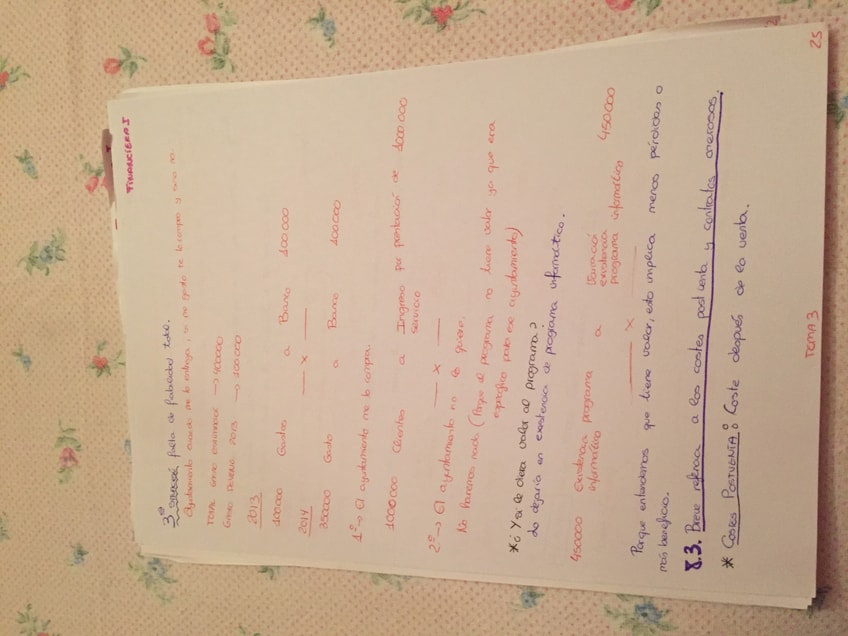 FINANCIERA I
3º falta de fiabilidad total.
Ayuntamiento cuando me lo entrega, si me gusta te lo compro y sino no.
TOTAL GASTO ESTIMADO →400000
GASTO DEVENG 2013 → 100000
2013
100000 Gastos a Banco 100000
x
2014
Gasto a Banco
1º→ El ayuntamiento me lo compra.
1000000 Clientes a Ingreso por prestación de servicio 1000000
x
2º→ El ayuntamiento no lo quiere.
No haremos nada (Porque el programa no tiene valor ya que era
específico para ese ayuntamiento)
*¿Y si le diera valor al programa?
Lo dejaría en existencia de programa informático.
450000 Existencia programa informático a Variación existencia programa informático 450000
x
Porque entendemos que tiene valor, esto implica menos pérdidas o
más beneficio.
8.3. Breve referencia a los costes postventa y contratos onerosos.
* COSTES POSTVENTA: Coste después de la venta.
TOMA 3
25